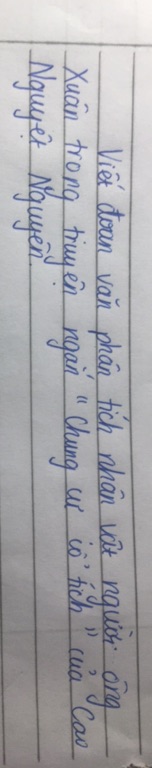 Viết đoạn văn phân tích nhân vật người ông
Xuân trong truyện ngắn "Chung cư cổ tích" của Cao
Nguyệt Nguyên.